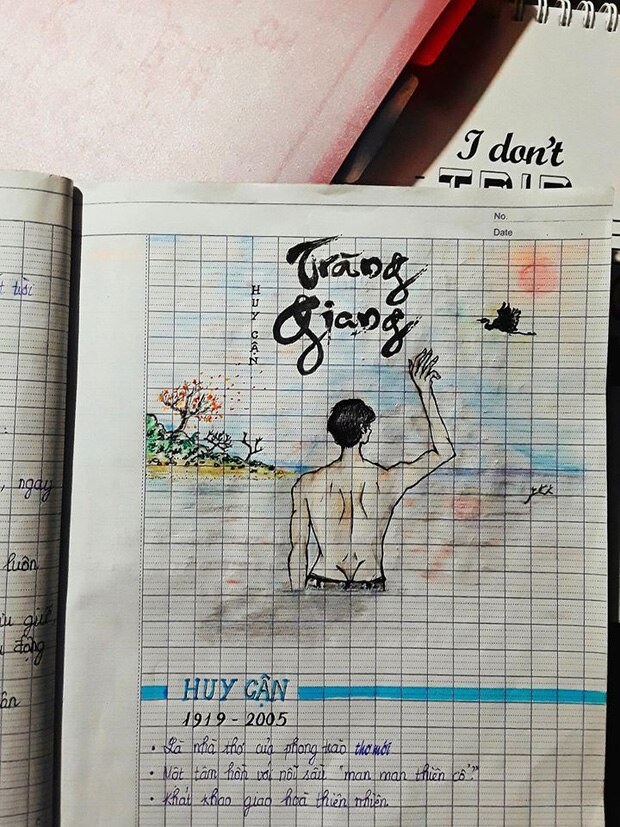 I don't
TRIP
No.
Date
Tràng
Giang
HUY CẬN
t tuổi
, ngay
luôn
giữ
đạng
ân
jkk
HUY CẬN
1919 - 2005
• Là nhà thơ của phong trào thơ mới
• Một tâm hồn với nỗi sầu "man man thiên cổ"
• Khát khao giao hoà thiên nhiên.